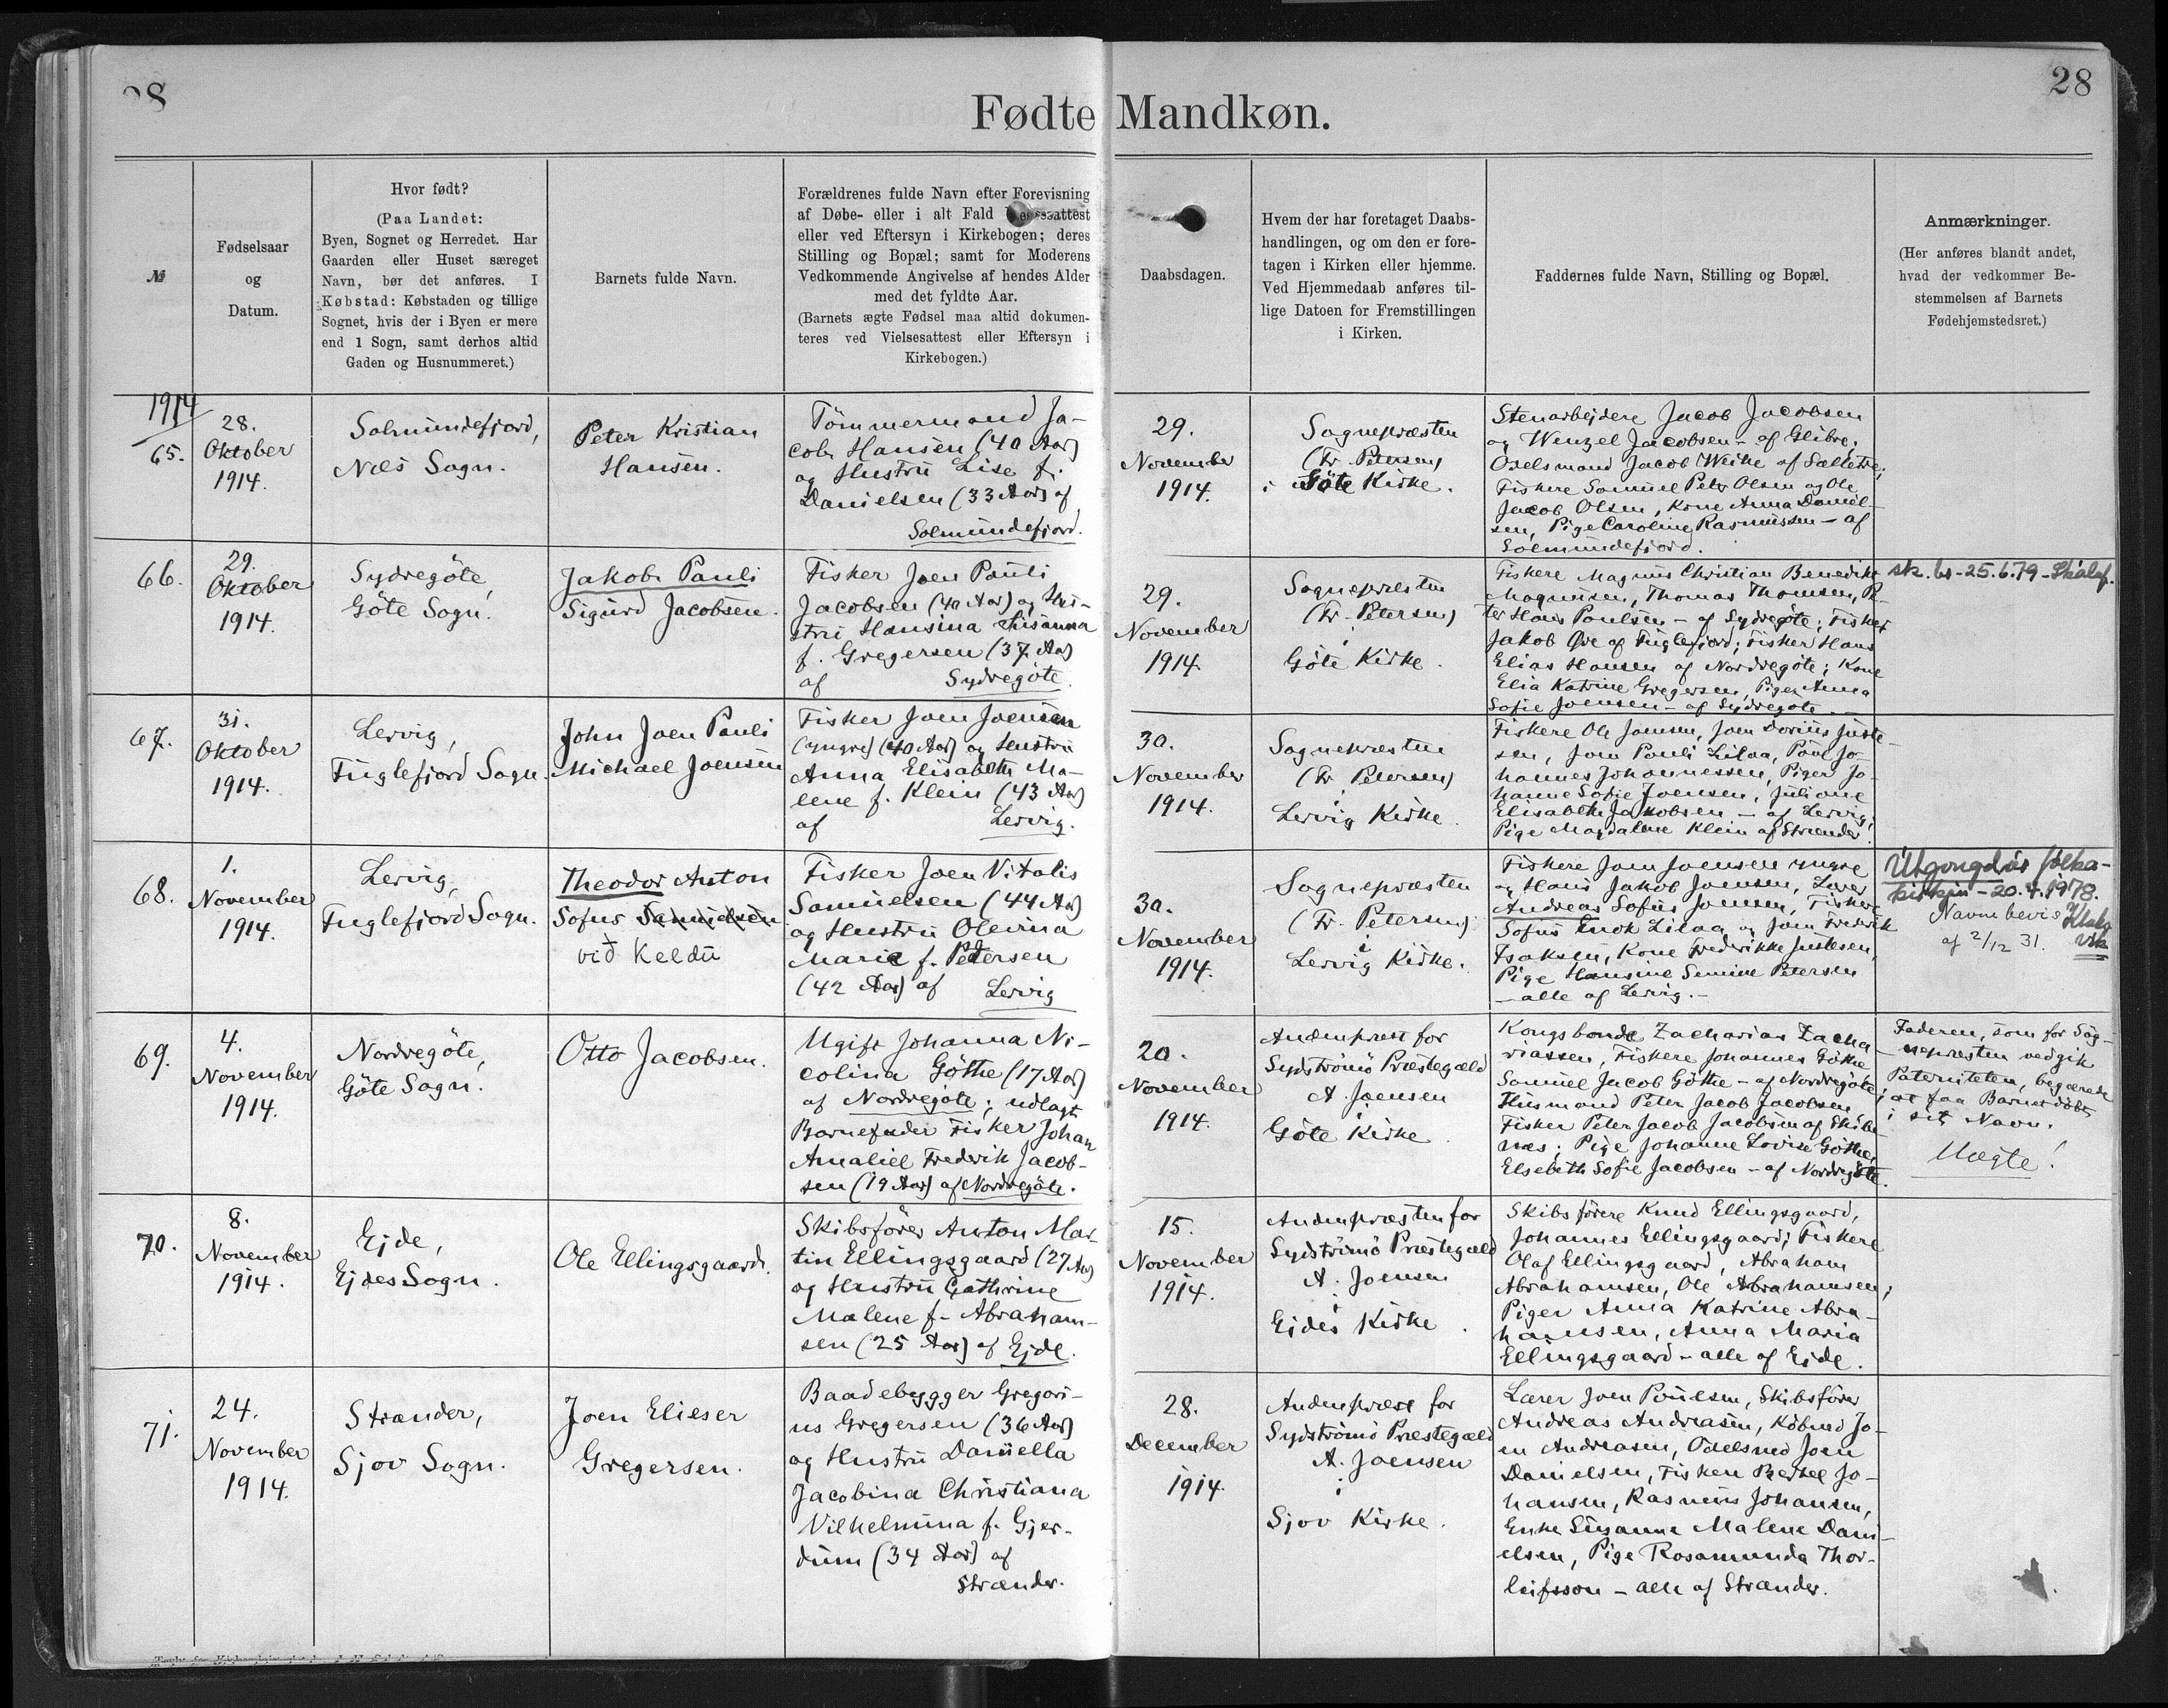 28
28
Fødte Mandkøn.
№
Fødselsaar
og
Datum.
Hvor født?
(Paa Landet:
Byen, Sognet og Herredet. Har
Gaarden eller Huset særeget
Navn, bør det anføres. I
Købstad: Købstaden og tillige
Sognet, hvis der i Byen er mere
end 1 Sogn, samt derhos altid
Gaden og Husnummeret.)
Barnets fulde Navn.
Forældrenes fulde Navn efter Forevisning
af Døbe- eller i alt Fald
eller ved Eftersyn i Kirkebogen; deres
Stilling og Bopæl; samt for Moderens
Vedkommende Angivelse af hendes Alder
med det fyldte Aar.
(Barnets ægte Fødsel maa altid dokumen-
teres ved Vielsesattest eller Eftersyn i
Kirkebogen.)
Daabsdagen.
Hvem der har foretaget Daabs-
handlingen, og om den er fore-
tagen i Kirken eller hjemme.
Ved Hjemmedaab anføres til-
lige Datoen for Fremstillingen
i Kirken.
Faddernes fulde Navn, Stilling og Bopæl.
Anmærkninger.
(Her anføres blandt andet,
hvad der vedkommer Be-
stemmelsen af Barnets
Fødehjemstedsret.)
1914
65.
28.
Oktober
1914.
Solmundefjord,
Næs Sogn.
Peter Kristian
Hansen.
Tömmermand Ja-
cob Hansen (40 Aar)
og Hustru Lise f.
Danielsen (33 Aar) af
Solmundefjord.
29.
November
1914.
Sognepræsten
(Fr. Petersen)
i Göte Kirke.
Stenarbejdere Jacob Jacobsen
og Wenzel Jacobsen - af Glibre;
Odelsmand Jacob Weihe af Sælletre;
Fiskere Samuel Peter Olsen og Ole
Jacob Olsen, Kone Anna Daniel-
sen, Pige Caroline Rasmussen - af
Solmundefjord.
66.
29.
Oktober
1914.
Sydregöte,
Göte Sogn.
Jakob Pauli
Sigurd Jacobsen.
Fisker Joen Pauli
Jacobsen (40 Aar) og Hus-
stru Hansina Susanna
f. Gregersen (37 Aar)
af Sydregöte.
29.
November
1914.
Sognepræsten
(Fr. Petersen)
i
Göte Kirke.
Fiskere Magnus Christian Benedikt
Magnusen, Thomas Thomsen, Pe-
ter Hans Poulsen - af Sydregöte; Fisker
Jakob Øre af Fuglefjord; Fisker Hans
Elias Hansen af Nordregöte; Kone
Elia Katrine Gregersen, Pige Anna
Sofie Joensen - af Sydregöte.
sk. bs - 25.6.79 - Skálaf.
67.
31.
Oktober
1914.
Lervig,
Fuglefjord Sogn.
John Joen Pauli
Michael Joensen
Fisker Joen Joensen
(yngre) (40 Aar) og Hustru
Anna Elisabeth Ma-
lene f. Klein (43 Aar)
af Lervig.
30.
November
1914.
Sognepræsten
(Fr. Petersen)
i
Lervig Kirke.
Fiskere Ole Joensen, Joen Dorius Juste-
sen, Joen Pauli Lilaa, Poul Jo-
hannes Johannessen, Piger Jo-
hanne Sofie Joensen, Juliane
Elisabeth Jakobsen - af Lervig;
Pige Magdalene Klein af Strænder.
68.
1.
November
1914.
Lervig,
Fuglefjord Sogn.
Theodor Anton
Sofus Samuelsen
við Keldu
Fisker Joen Vitalis
Samuelsen (44 Aar)
og Hustru Olevina
Marie f. Petersen
(42 Aar) af Lervig
30.
November
1914.
Sognepræsten
(Fr. Petersen)
i
Lervig Kirke.
Fiskere Joen Joensen yngre
og Hans Jakob Joensen, Lærer
Andreas Sofus Joensen, Fiskere
Sofus Enok Lilaa og Joen Frederik
Isaksen, Kone Frederikke Justesen,
Pige Hansine Semine Petersen
- alle af Lervig. -
Útgongdur fólka-
kirkjin - 20.4.1978.
Navnebevis Klaks
af 2/12 31. vík
69.
4.
November
1914.
Nordregöte,
Göte Sogn.
Otto Jacobsen.
Ugift Johanna Ni-
colina Göthe (17 Aar)
af Nordregöte; udlagt
Barnefader Fisker Johan
Amaliel Frederik Jacob-
sen (19 Aar) af Nordregöte.
20.
November
1914.
Andenpræst for
Sydströmö Præstegæld
A. Joensen
i
Göte Kirke.
Kongsbonde Zacharias Zacha
riassen, Fiskere Johannes Göthe
Samuel Jacob Göthe - af Nordregöte
Husmand Peter Jacob Jacobsen,
Fisker Peter Jacob Jacobsen af Skibe
næs; Pige Johanne Lovise Göthe,
Elsebeth Sofie Jacobsen - af Nordregöte.
Faderen, som for Sog-
nepræsten vedgik
Paterniteten, begærede
at faa Barnet döbt
i sit Navn.
Uægte!
70.
8.
November
1914.
Ejde,
Ejdes Sogn.
Ole Ellingsgaard.
Skibsförer Anton Mar-
tin Ellingsgaard (27 Aar)
og Hustru Cathrine
Malene f. Abraham-
sen (25 Aar) af Ejde.
15.
November
1914.
Andenpræsten for
Sydströmö Præstegæld
A. Joensen
i
Ejdes Kirke.
Skibsförere Knud Ellingsgaard,
Johannes Ellingsgaard; Fiskere
Olaf Ellingsgaard, Abraham
Abrahamsen, Ole Abrahamsen;
Piger Anna Katrine Abra-
hamsen, Anna Maria
Ellingsgaard - alle af Ejde.
71.
24.
November
1914.
Strænder,
Sjov Sogn.
Joen Elieser
Gregersen.
Baadebygger Gregori-
us Gregersen (36 Aar)
og Hustru Daniella
Jacobina Christiana
Vilhelmina f. Gjer-
dum (34 Aar) af
Strænder.
28.
December
1914.
Andenpræst for
Sydströmö Præstegæld
A. Joensen
i
Sjov Kirke.
Lærer Joen Poulsen, Skibsförer
Andreas Andreasen, Köbmd Jo-
en Andreasen, Odelsmd Joen
Danielsen, Fiskere Bertel Jo-
hansen, Rasmus Johansen,
Enke Susanne Malene Dani-
elsen, Pige Rosamunda Thor-
leifsson - alle af Strænder.